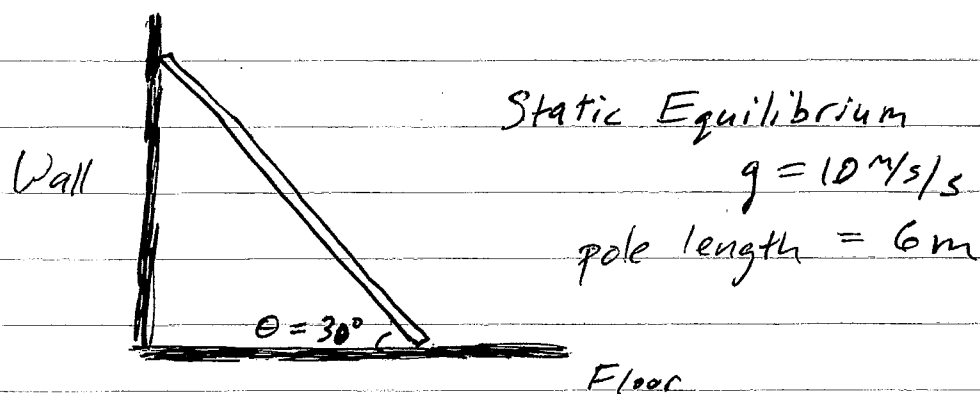 Static Equilibrium
Wall
g = 10 m/s/s
pole length = 6m
θ = 30°
Floor